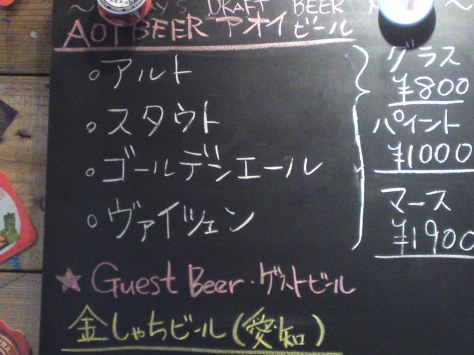 DRAFT BEER
AOI BEER アオイビール
アルト
スタウト
ゴールデンエール
ヴァイツェン
グラス
¥800
パイント
¥1000
マース
¥1900
★ Guest Beer・ゲストビール
金しゃちビール(愛知)